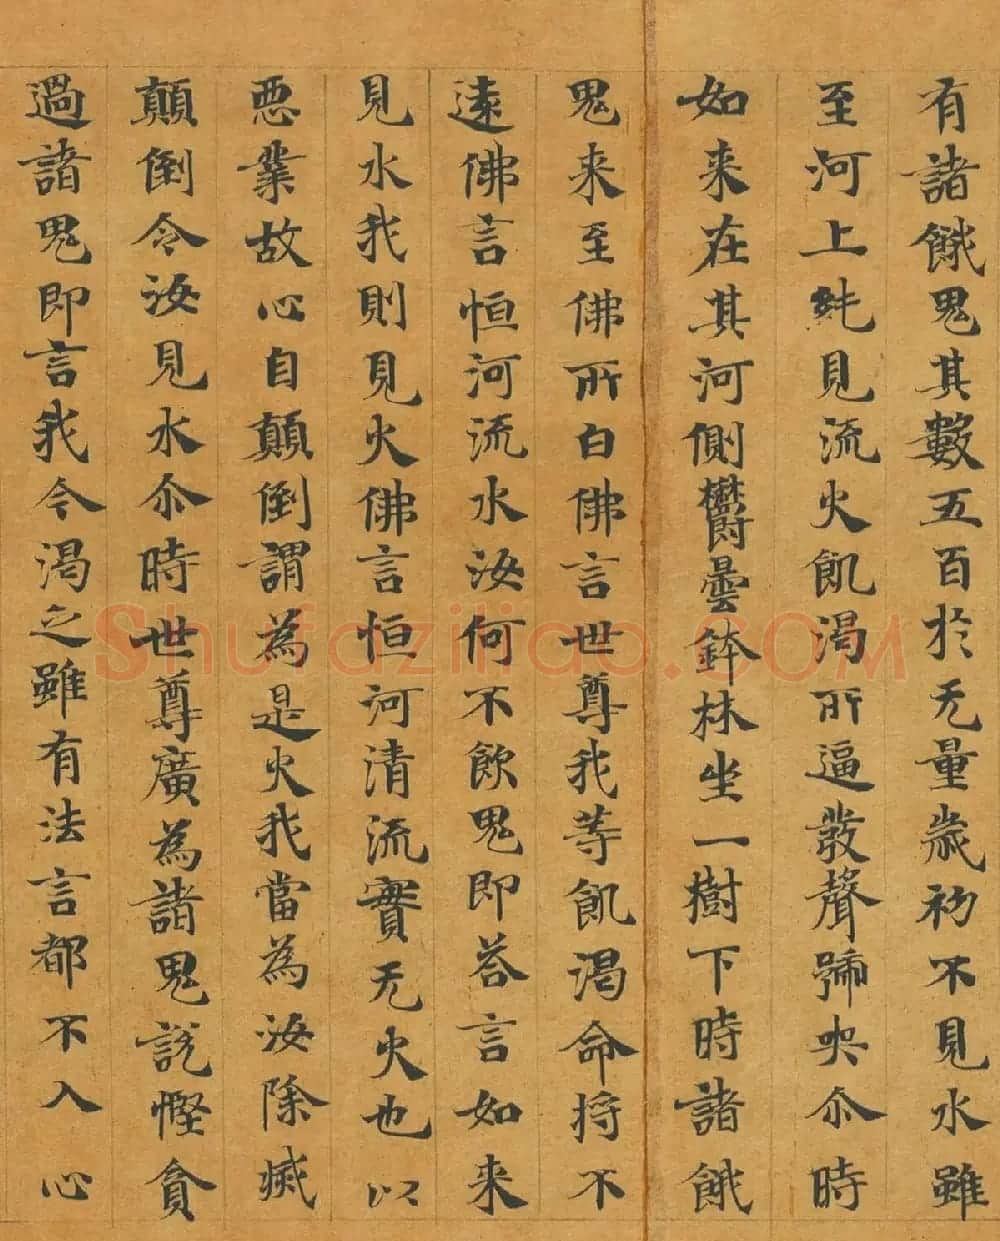 有諸餓鬼其數五百於无量歲初不見水雖
至河上純見流火飢渴所逼發聲號哭尒時
如来在其河側欝曇鉢林坐一樹下時諸餓
鬼来至佛所白佛言世尊我等飢渴命将不
遠佛言恒河流水汝何不飲鬼即荅言如来
見水我則見火佛言恒河清流實无火也以
惡業故心自顛倒謂為是火我當為汝除滅
顛倒令汝見水尒時世尊廣為諸鬼説慳貪
過諸鬼即言我今渴乏雖有法言都不入心
Shufaziliao.COM